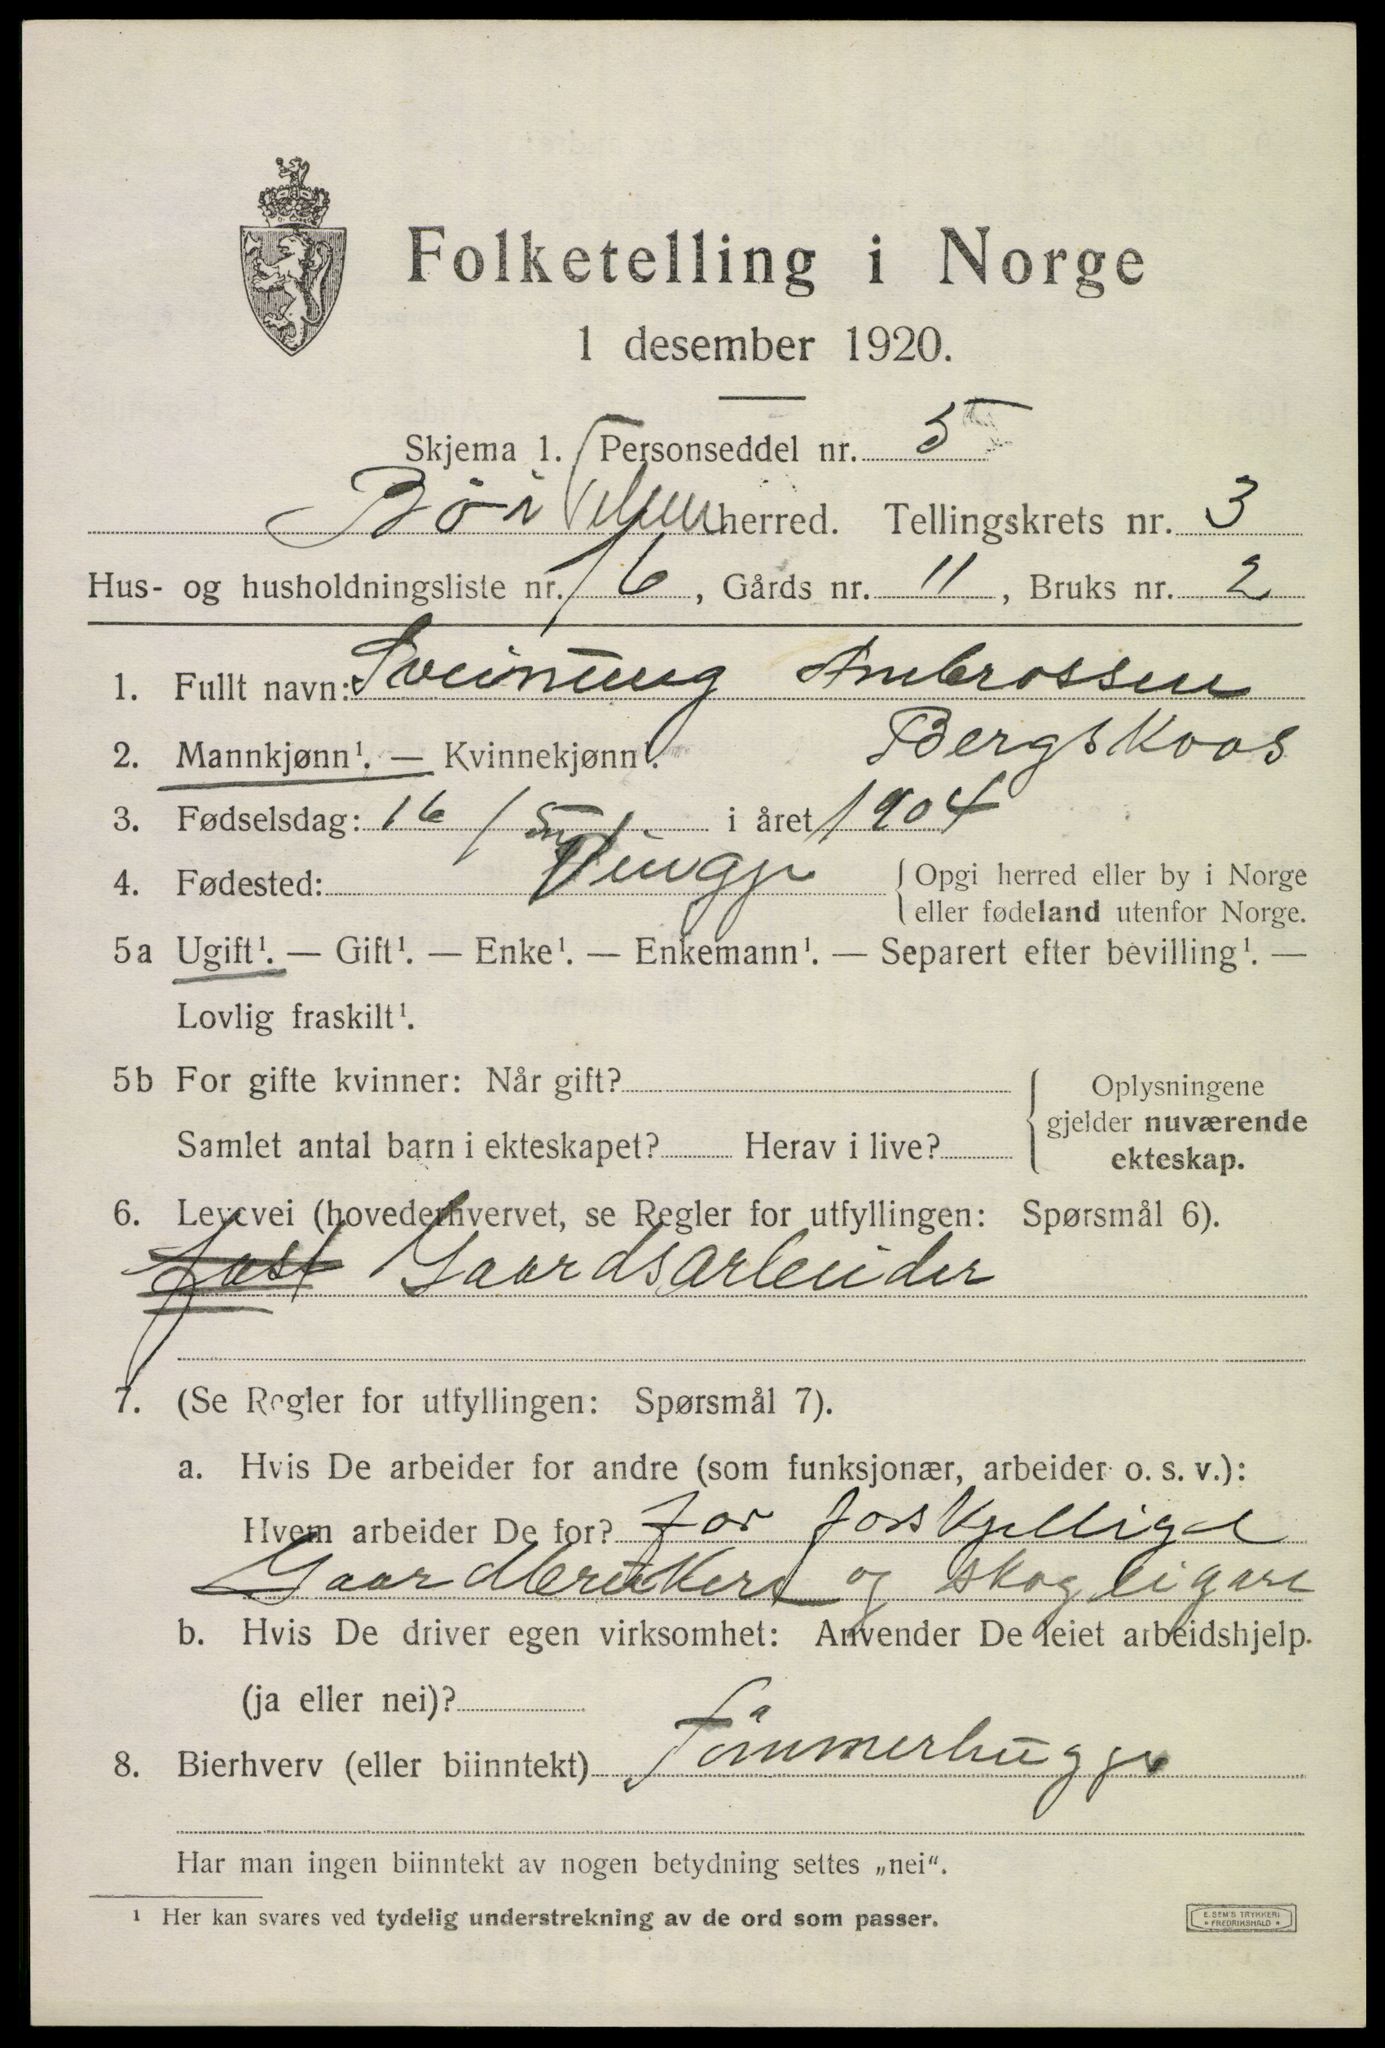 Folketelling i Norge
1 desember 1920.
Skjema 1. Personseddel nr. 5
Bø i Telem herred. Tellingskrets nr. 3
Hus- og husholdningsliste nr. 16, Gårds nr. 11, Bruks nr. 2
1. Fullt navn: Sveinung Ambrossen
Bergskaas
2. Mannkjønn¹. — Kvinnekjønn¹.
3. Fødselsdag: 16/5 i året 1904
4. Fødested: Vinje { Opgi herred eller by i Norge
eller fødeland utenfor Norge.
5a Ugift¹. — Gift¹. — Enke¹. — Enkemann¹. — Separert efter bevilling¹. —
Lovlig fraskilt¹.
5b For gifte kvinner: Når gift?
Samlet antal barn i ekteskapet? Herav i live?
Oplysningene
gjelder nuværende
ekteskap.
6. Levevei (hovederhvervet, se Regler for utfyllingen: Spørsmål 6).
fast Gaardsarbeider
7. (Se Regler for utfyllingen: Spørsmål 7).
a. Hvis De arbeider for andre (som funksjonær, arbeider o. s. v.):
Hvem arbeider De for? for forskjellige
Gaardbrukere og skogeigare
b. Hvis De driver egen virksomhet: Anvender De leiet arbeidshjelp
(ja eller nei)?
8. Bierhverv (eller biinntekt) Tømmerhugger
Har man ingen biinntekt av nogen betydning settes „nei“.
¹ Her kan svares ved tydelig understrekning av de ord som passer.
E. SEM'S TRYKKERI
* FREDRIKSHALD *